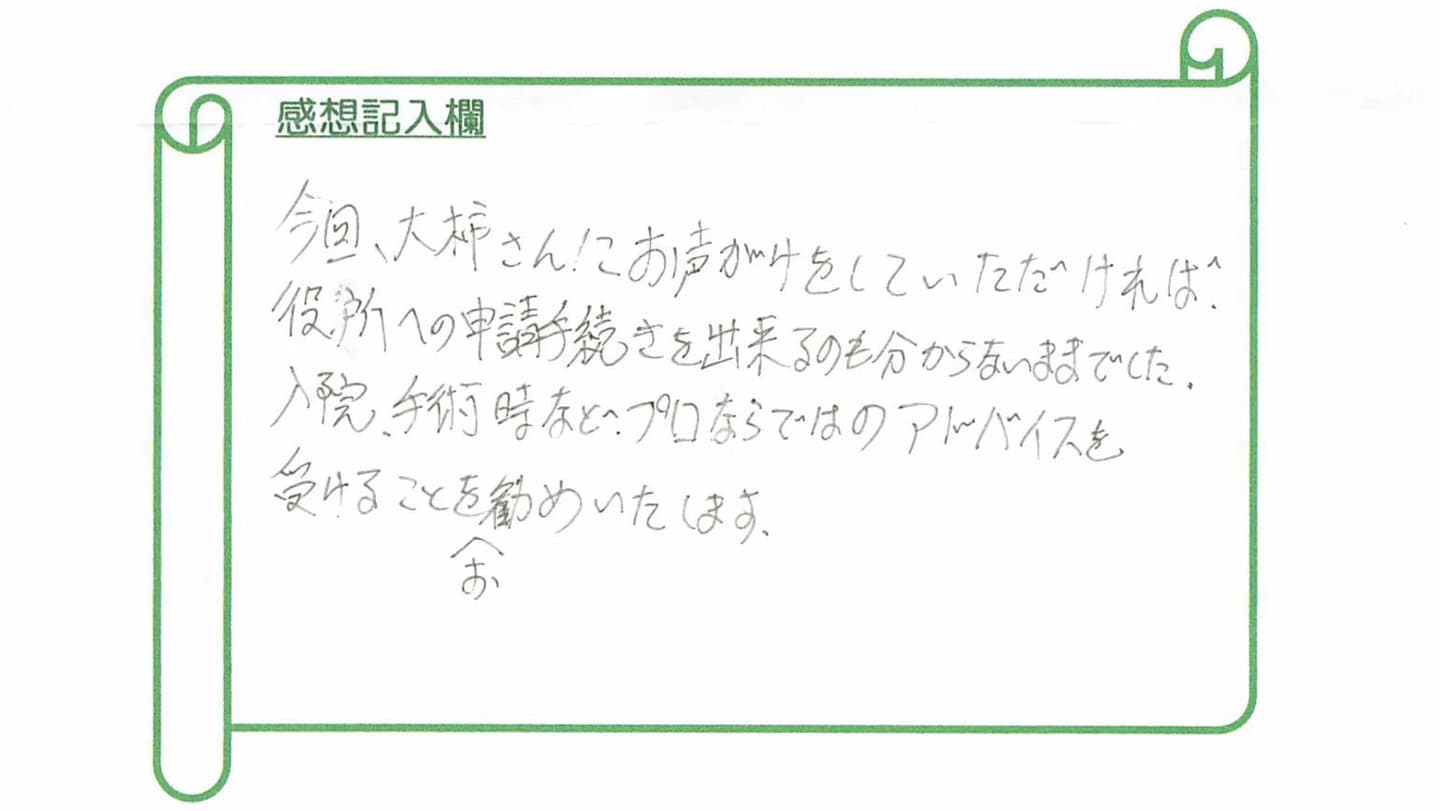 感想記入欄
今回、大柿さんにお声がけをしていただければ、
役所への申請手続きを出来るのも分からないままでした。
入院、手術時など、プロならではのアドバイスを
受けることを勧めいたします。
お